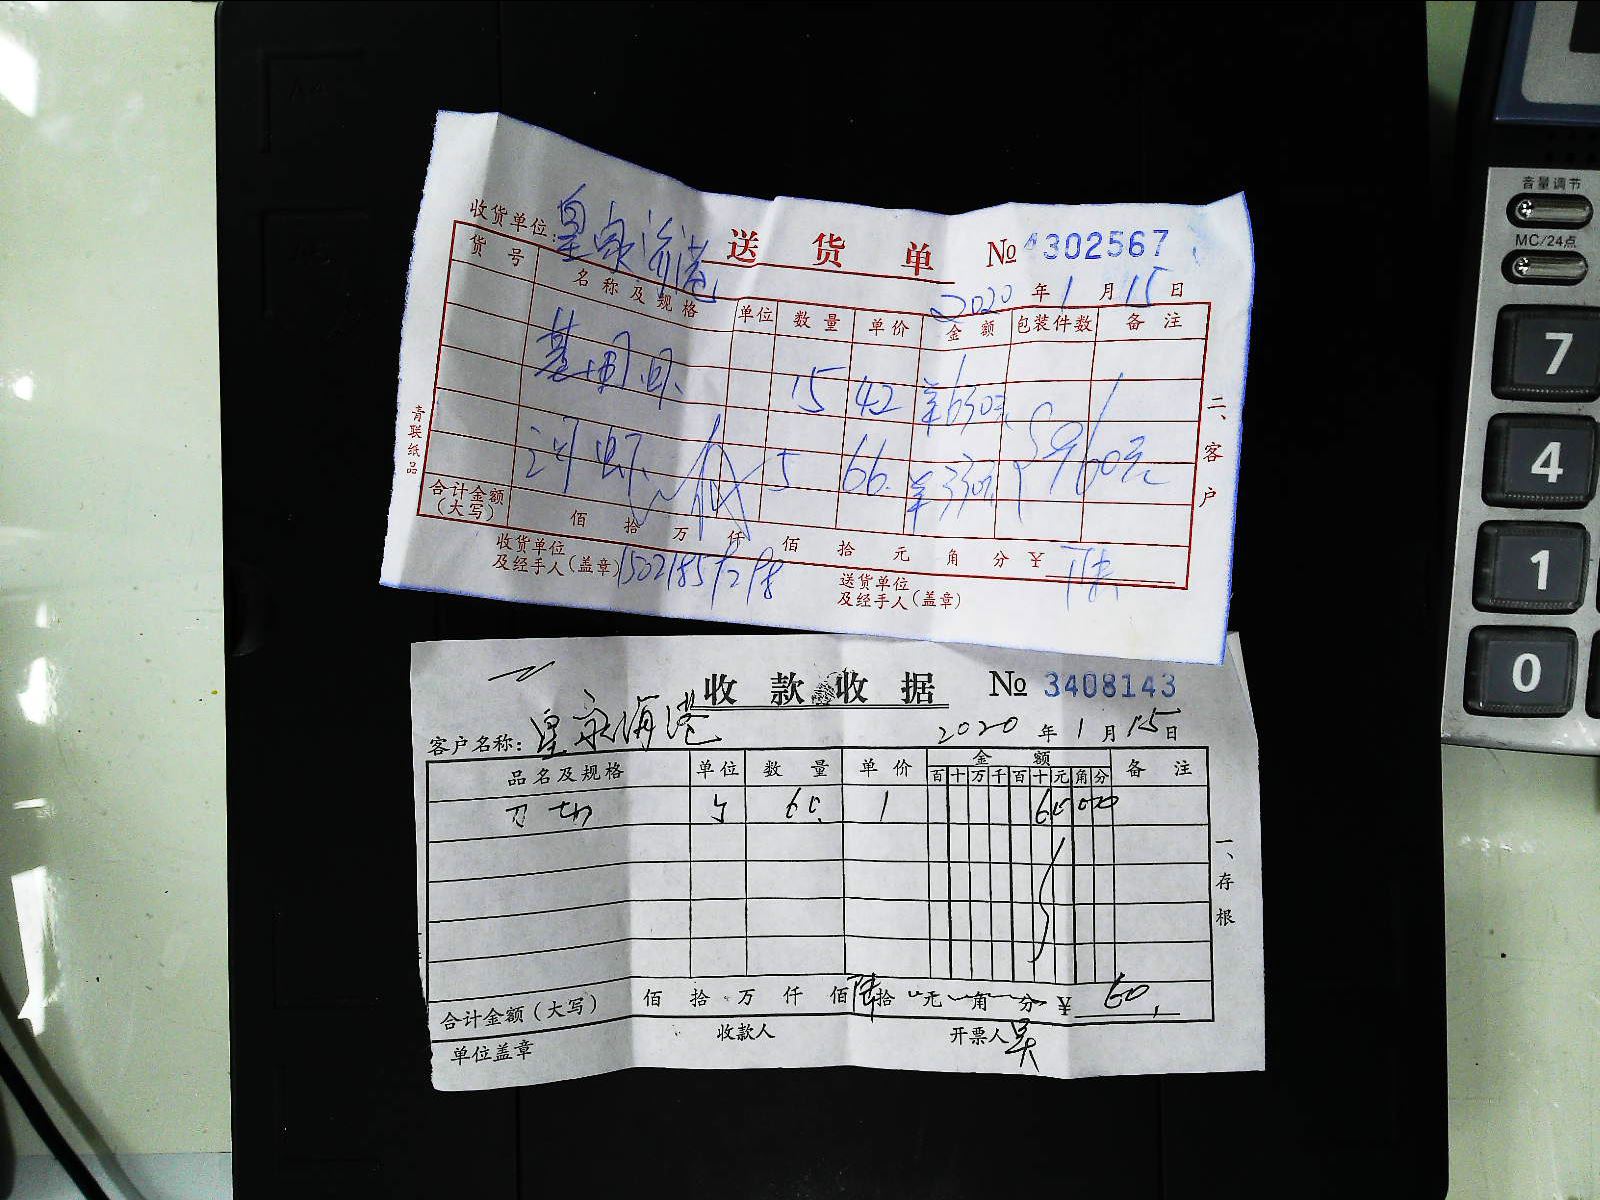 收货单位: 皇家海港
送货单 № 4302567
2020年1月15日
货号 名称及规格 单位 数量 单价 金额 包装件数 备注
基围虾 15 42 630元
河虾 5 66. 330元
960元
合计金额(大写) 佰 拾 万 仟 佰 拾 元 角 分 ¥
收货单位及经手人(盖章)
送货单位及经手人(盖章)
青联纸品
二、客户
收款收据 № 3408143
客户名称: 皇家海港 2020年1月15日
品名及规格 单位 数量 单价 金额 备注
百十万千百十元角分
刀切 60. 1 60 00
合计金额(大写) 佰 拾 万 仟 佰 陆拾 元 角 分 ¥ 60.
单位盖章 收款人 开票人 吴
一、存根
音量调节
MC/24点
7
4
1
0